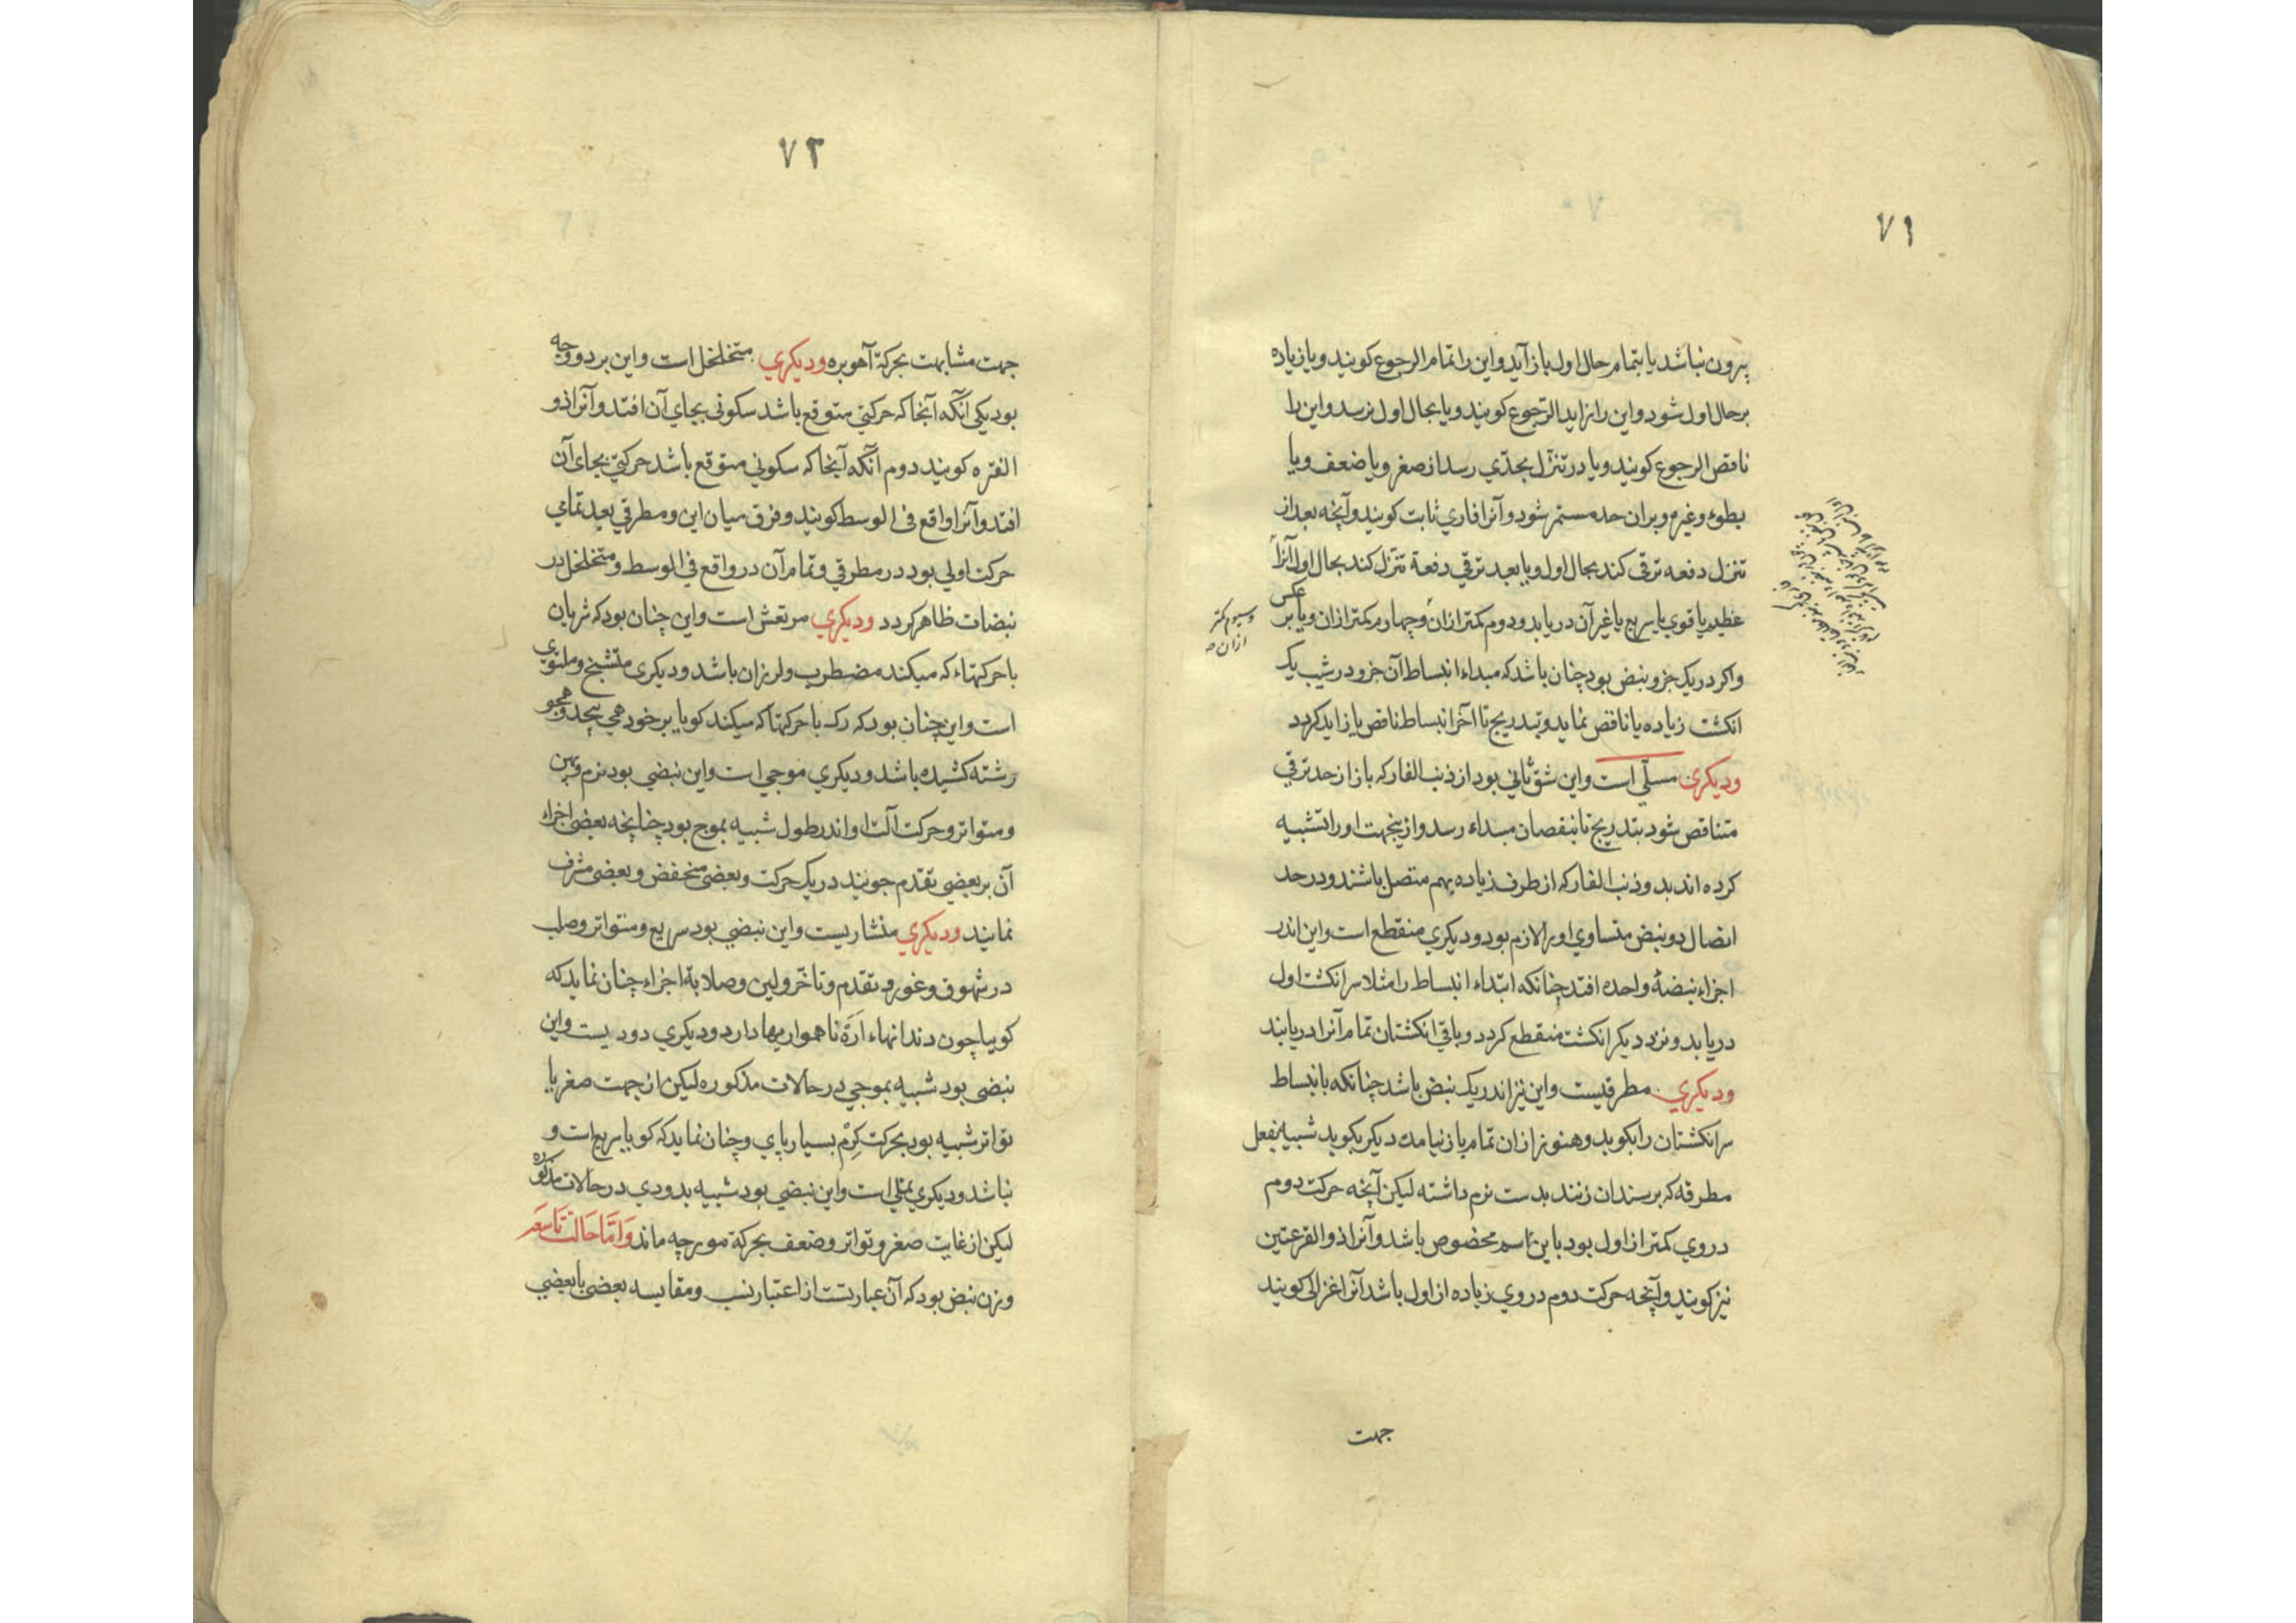 ۷۱
بیرون نباشد یا بتمام حال اول باز آید و این را تمام الرجوع کویند و یا زیاده
بر حال اول شود و این را زاید الرّجوع کویند و یا بحال اول نرسد و این را
ناقص الرجوع کویند و یا در تنزّل بحدّی رسد از صغر و یا ضعف و یا
بطوء و غیره و بران حد مستمر شود و آنرا فاری ثابت کویند و آنچه بعد از
تنزل دفعه ترقی کند بحال اول و یا بعد ترقی دفعة تنزل کند بحال اول آنرا
عظیم یا قوی یا سریع یا غیر آن دریابد و دوم کمتر ازان و چهارم کمتر ازان و یا بر عکس
و سیوم کمتر
ازان صه
و اکر در یک جزو نبض بود چنان باشد که مبداء انبساط آن جزو در شیب یک
انکشت زیاده یا ناقص نماید و بتدریج تا آخر انبساط ناقص یا زاید کردد
ودیکری مسلّی است و این شق ثانی بود از ذنب الفار که باز از حد ترقی
متناقص شود بتدریج تا بنقصان مبداء رسد و ازینجهت او را تشبیه
کرده اند بدو ذنب الفار که از طرف زیاده بهم متصل باشند و در حد
اتصال دو نبض متساوی او را لازم بود و دیکری منقطع است و این اندر
اجزاء نبضهٔ واحده افتد چنانکه ابتداء انبساط را مثلا سر انکشت اول
دریابد و نزد دیکر انکشت منقطع کردد و باقی انکشتان تمام آنرا دریابند
ودیکری مطرقیست و این نیز اندر یک نبض باشد چنانکه بانبساط
سر انکشتان را بکوبد و هنوز ازان تمام باز نیامده دیکر بکوبد شبیه بفعل
مطرقه که بر سندان زنند بدست نرم داشته لیکن آنچه حرکت دوم
در وی کمتر از اول بود باین اسم مخصوص باشد و آنرا ذو القرعتین
نیز کویند و آنچه حرکت دوم در وی زیاده از اول باشد آنرا غزالی کویند
جهت
۷۲
جهت مشابهت بحرکة آهو بره ودیکری متخلخل است و این بر دو وجه
بود یکی آنکه آنجا که حرکتی متوقع باشد سکونی بجای آن افتد و آنرا ذو
الفتره کویند دوم آنکه آنجا که سکونی متوقع باشد حرکتی بجای آن
افتد و آنرا واقع فی الوسط کویند و فرق میان این و مطرقی بعد تمامی
حرکت اولی بود در مطرقی و تمام آن در واقع فی الوسط و متخلخل در
نبضات ظاهر کردد ودیکری مرتعش است و این چنان بود که شریان
با حرکتهاء که میکند مضطرب و لرزان باشد و دیکری متشنج و ملتوی
است و این چنان بود که رک با حرکتها که میکند کویا بر خود همی پیچد و همچو
رشته کشیده باشد و دیکری موجی است و این نبضی بود نرم و پهن
و متواتر و حرکت آلت او اندر طول شبیه بموج بود چنانچه بعضی اجزاء
آن بر بعضی تقدم جویند در یک حرکت و بعضی منخفض و بعضی مشرف
نمایند ودیکری منشاریست و این نبضی بود سریع و متواتر و صلب
در شهوق و غور و تقدّم و تاخّر و لین و صلابة اجزاء چنان نماید که
کویا چون دندانهاء ارّه ناهمواریها دارد و دیکری دودیست و این
نبضی بود شبیه بموجی در حالات مذکوره لیکن از جهت صغر یا
تواتر شبیه بود بحرکت کِرْم بسیار پای و چنان نماید که کویا سریع است و
نباشد و دیکری نملی است و این نبضی بود شبیه بدودی در حالات مذکوره
لیکن از غایت صغر و تواتر و ضعف بحرکة مورچه ماند وَامَّا حَالت تَاسعَه
وزن نبض بود که آن عبارتست از اعتبار نسب و مقایسه بعضی با بعضی